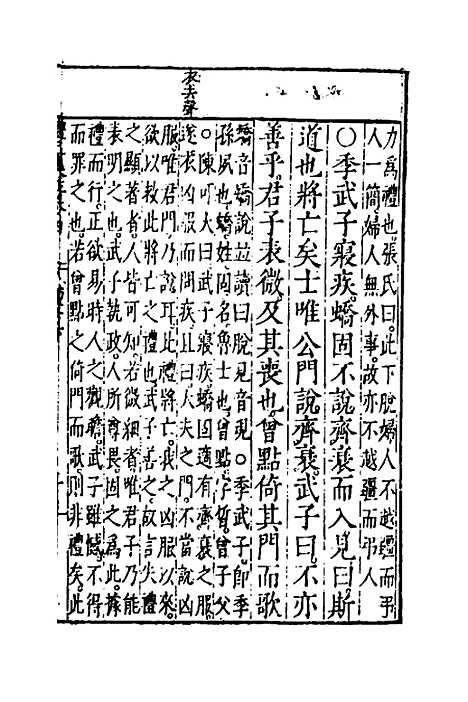 衰去聲
力爲禮也張氏曰此下脫婦人不越疆而弔
人一簡婦人無外事故亦不越疆而弔人
○季武子寢疾蟜固不說齊衰而入見曰斯
道也將亡矣士唯公門說齊衰武子曰不亦
善乎君子表微及其喪也曾點倚其門而歌
蟜音矯說並讀曰脫見音現○季武子卽季
孫夙也蟜姓固名魯士也曾點字晳曾子父
○陳可大曰武子寢疾蟜固適有齊衰之服
遂衣凶服而問疾且曰大夫之門不當說凶
服唯君門乃說耳此禮將亡我之凶服以來
欲以救此將亡之禮也武子善之故言失禮
之顯著者人皆可知若微細者唯君子乃能
表明之也武子執政人所尊畏固之爲此據
禮而行正欲易時人之觀瞻武子雖憾不得
而罪之也若曾點之倚門而歌則非禮矣此